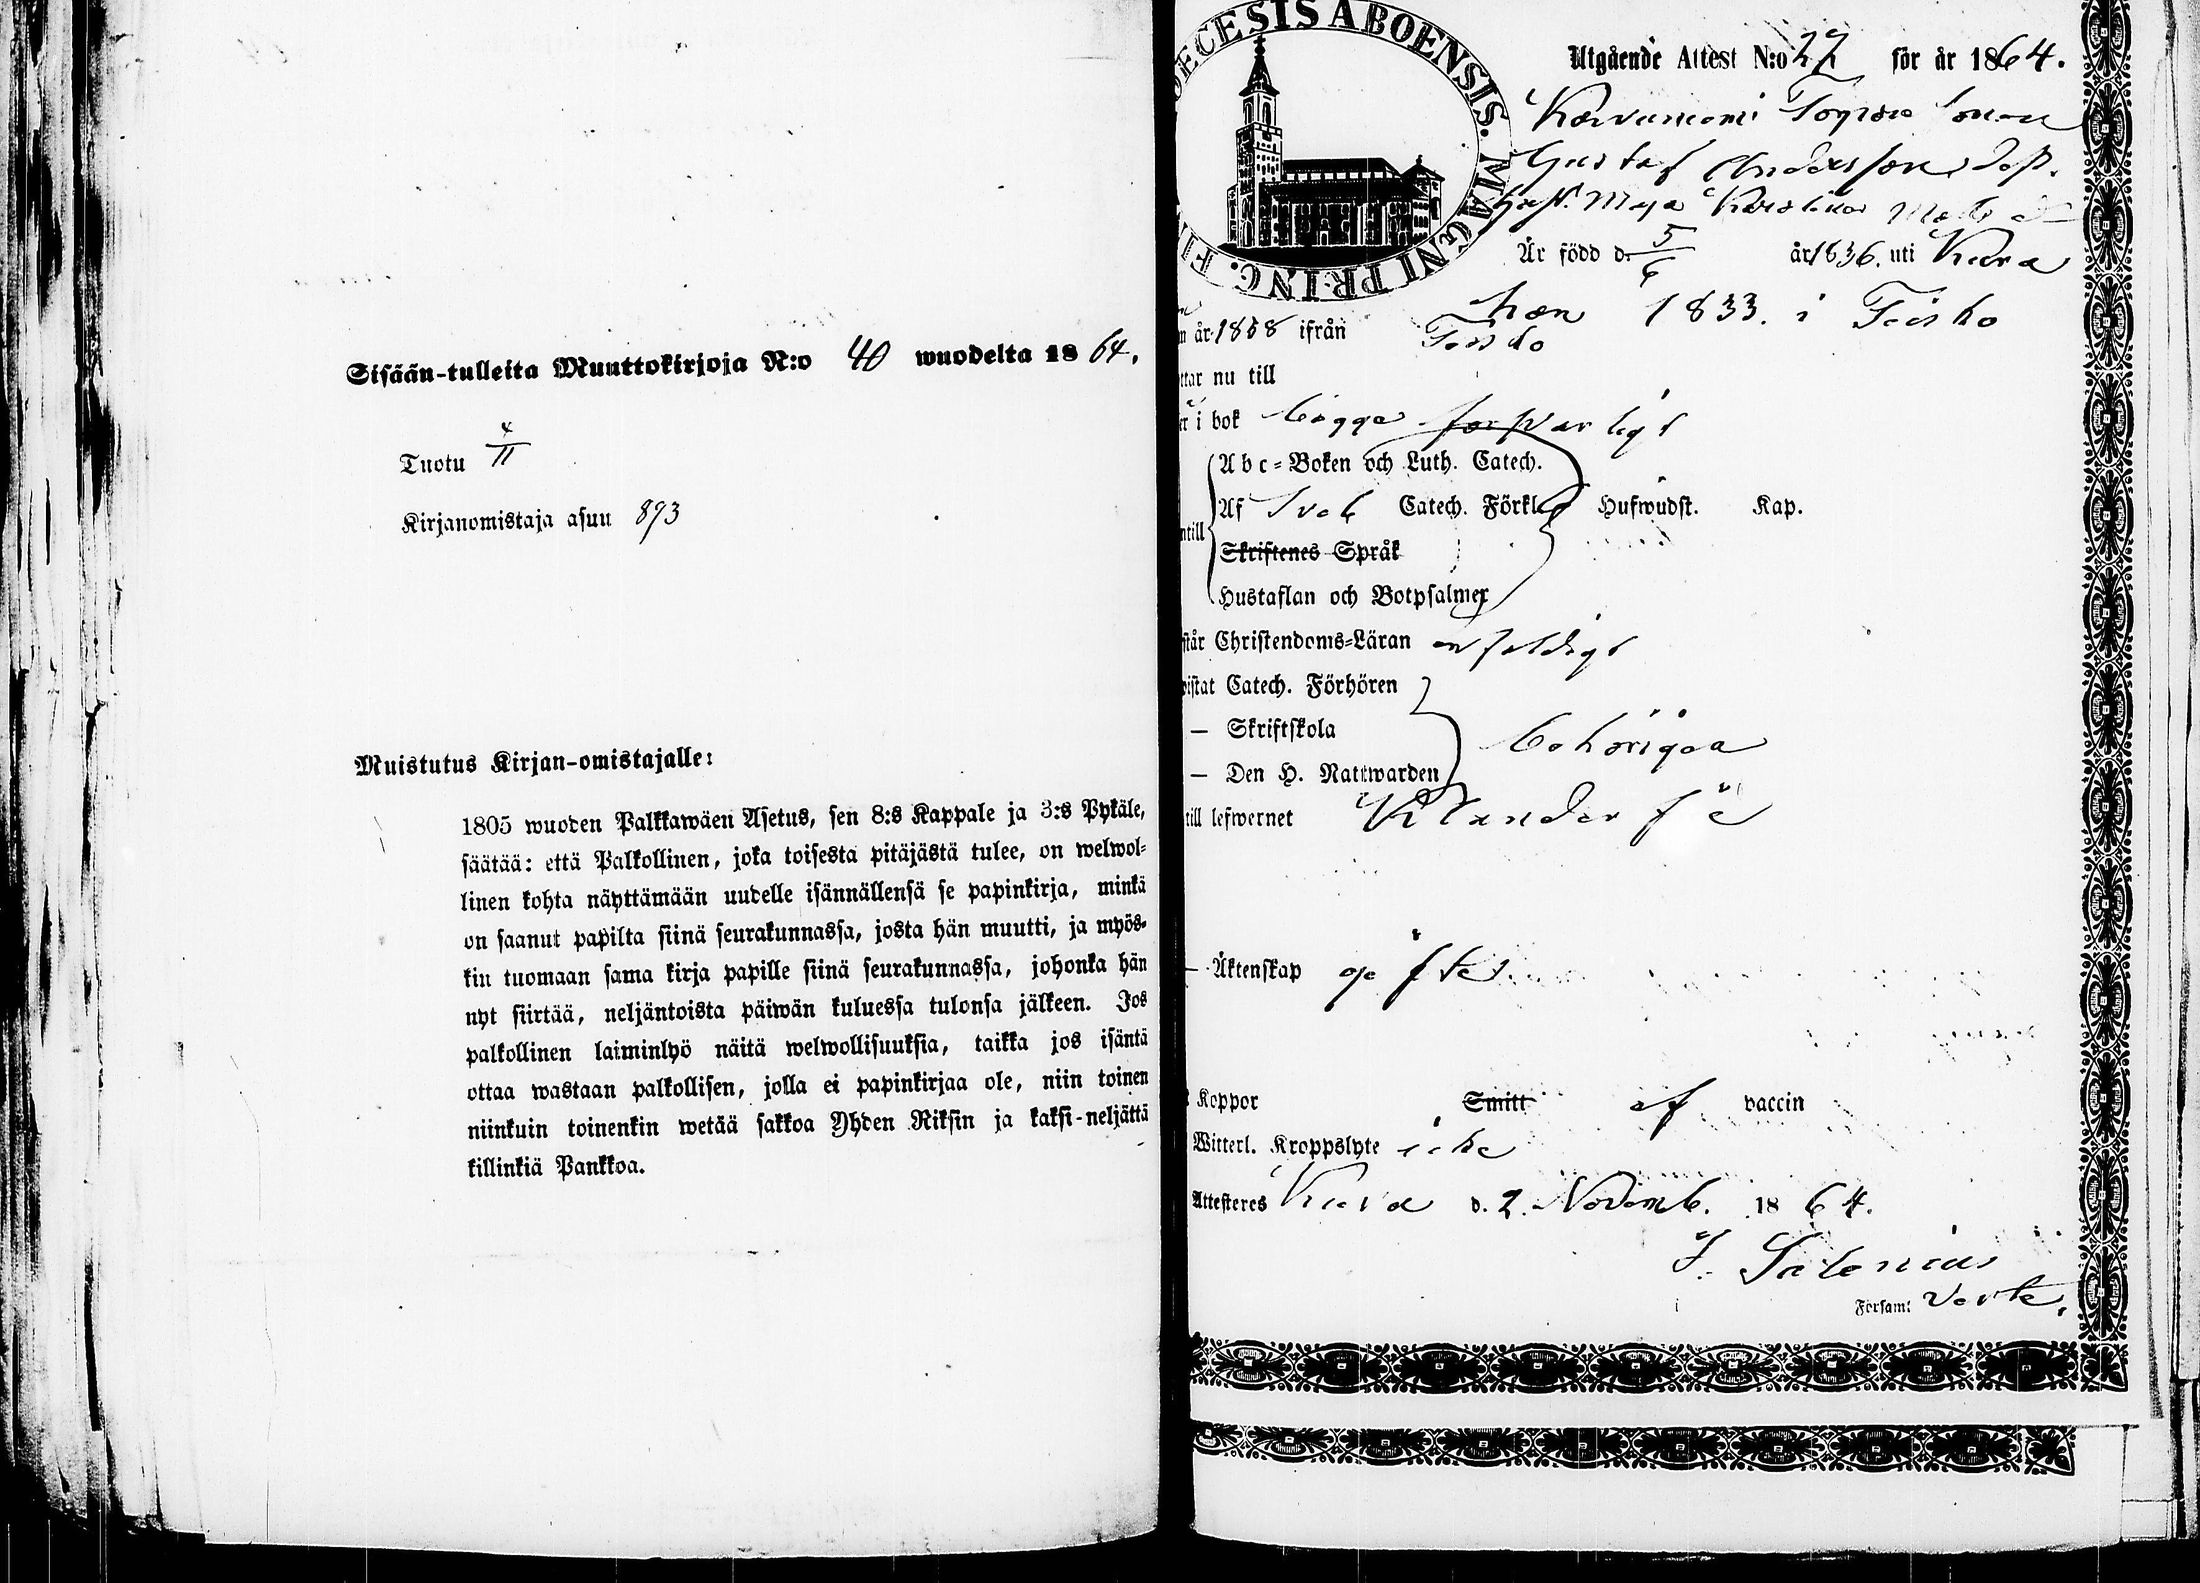 Sisään-tulleita Muuttokirjoja N:o 40 wuodelta 1864.
Tuotu 4/11
Kirjanomistaja asuu 893
Muistutus Kirjan-omistajalle:
1805 wuoden Palkkawäen Asetus, sen 8:s Kappale ja 3:s Pykäle,
säätää: että Palkollinen, joka toisesta pitäjästä tulee, on welwol-
linen kohta näyttämään uudelle isännällensä se papinkirja, minkä
on saanut papilta siinä seurakunnassa, josta hän muutti, ja myös-
kin tuomaan sama kirja papille siinä seurakunnassa, johonka hän
nyt siirtää, neljäntoista päiwän kuluessa tulonsa jälkeen. Jos
palkollinen laiminlyö näitä welwollisuuksia, taikka jos isäntä
ottaa wastaan palkollisen, jolla ei papinkirjaa ole, niin toinen
niinkuin toinenkin wetää sakkoa Yhden Riksin ja kaksi-neljättä
killinkiä Pankkoa.
ECESIS ABOENSIS. MAGNI PRINC. F
Utgående Attest N:o 27 för år 1864.
Torpare
Gustaf Andersson
Maja Karolina
Är född d. 5/6 år 1836. uti Kuru
hon 1833. i Teisko
år 1858 ifrån Teisko
ttar nu till
er i bok begge försvarligt
Abc-Boken och Luth. Catech.
Af Sveb Catech. Förkl. Hufwudst. Kap.
ntill
Skriftenes Språk
Hustaflan och Botpsalmer
står Christendoms-Läran enfaldigt
wistat Catech. Förhören
— Skriftskola behöriga
— Den H. Nattwarden
till lefwernet Klanderfri
— Äktenskap gifte
Koppor Smitt af vaccin
Witterl. Kroppslyte icke
Attesteres Kuru d. 2. Novemb. 1864.
J. Salenius
Församl.